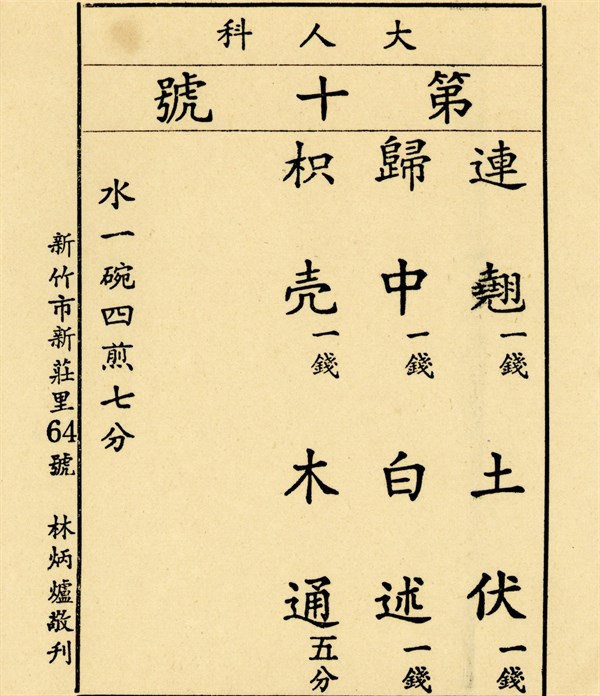 大人科
第十號
連翹一錢 土伏一錢
歸中一錢 白述一錢
枳壳一錢 木通五分
水一碗四煎七分
新竹市新莊里64號 林炳爐敬刊